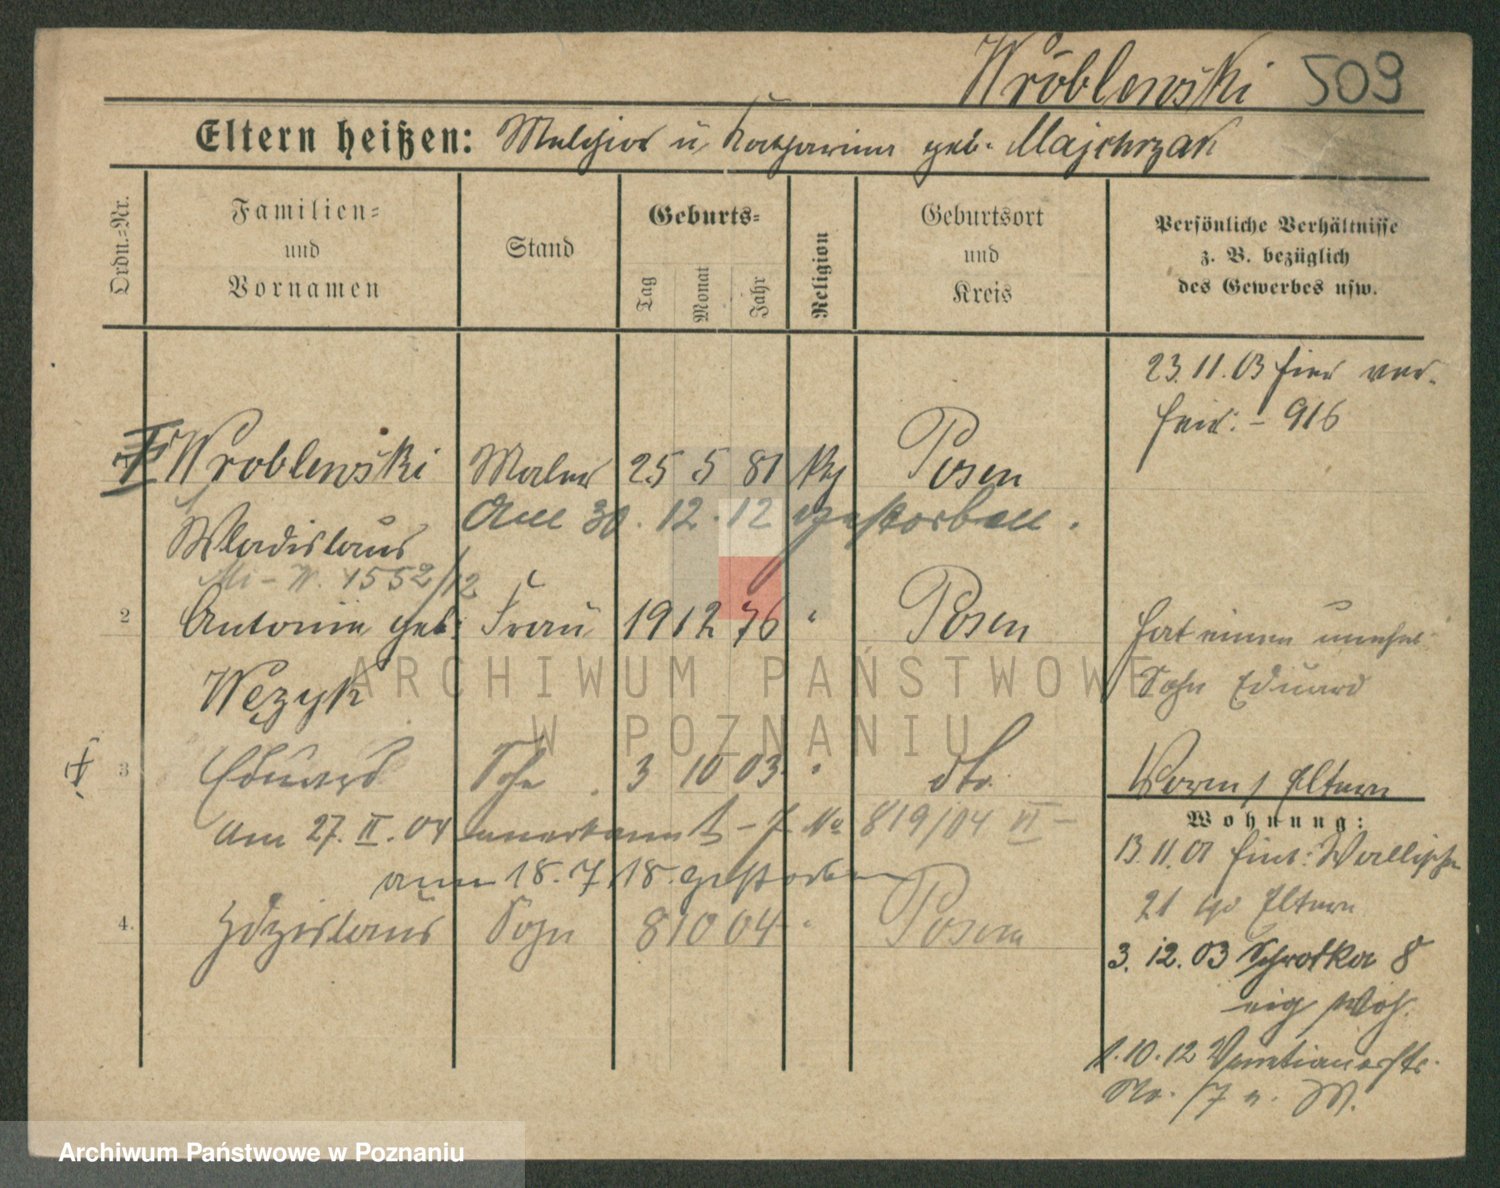 Wróblewski 509
Eltern heißen: Melchior u. Katharina geb. Majchrzak
Ordn.-Nr.
Familien-
und
Vornamen
Stand
Geburts-
Tag
Monat
Jahr
Religion
Geburtsort
und
Kreis
Persönliche Verhältnisse
z. B. bezüglich
des Gewerbes usw.
23.11.03 hier ver-
heir: - 916
Wroblewski Maler 25 5 81 Posen
Am 30.12.12 gestorben.
Wladislaus
1552/12
2 Antonie geb: Frau 19 12 76 " Posen
Wężyk
hat einen unehel.
Sohn Eduard
3 Eduard Sohn 3 10 03 " dto.
Am 27. II. 04 anerkannt - J. No 819/04 VI -
am 18.7.18. gestorben
4. Zdzislaus Sohn 8 10 04 " Posen
Vorm / Eltern
Wohnung:
13.11.01 Wallische
21 Eltern
3.12.03 Schrotka 8
eig Woh.
1.10.12 Venetianerstr.
No. 17 a. W.
ARCHIWUM PAŃSTWOWE
W POZNANIU
Archiwum Państwowe w Poznaniu